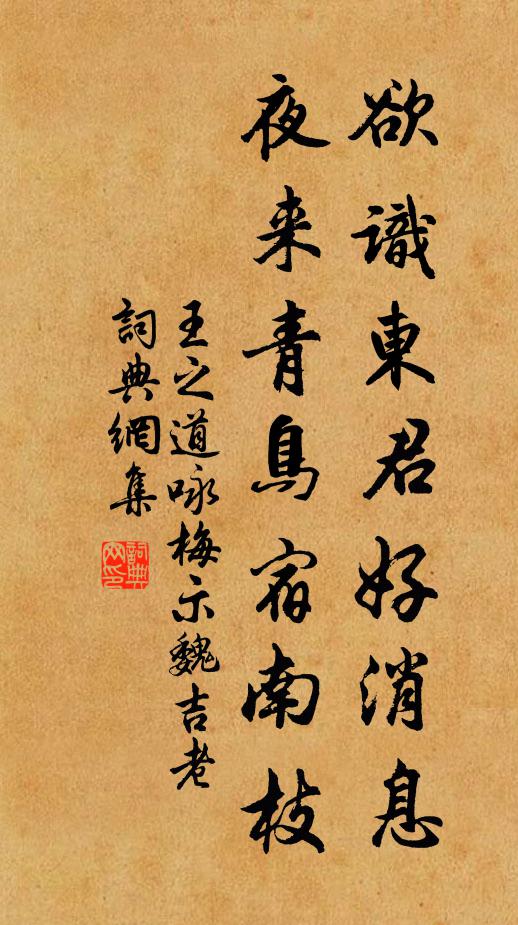 欲識東君好消息
夜来青鳥宿南枝
王之道咏梅示魏吉老
詞典網集
詞典网印